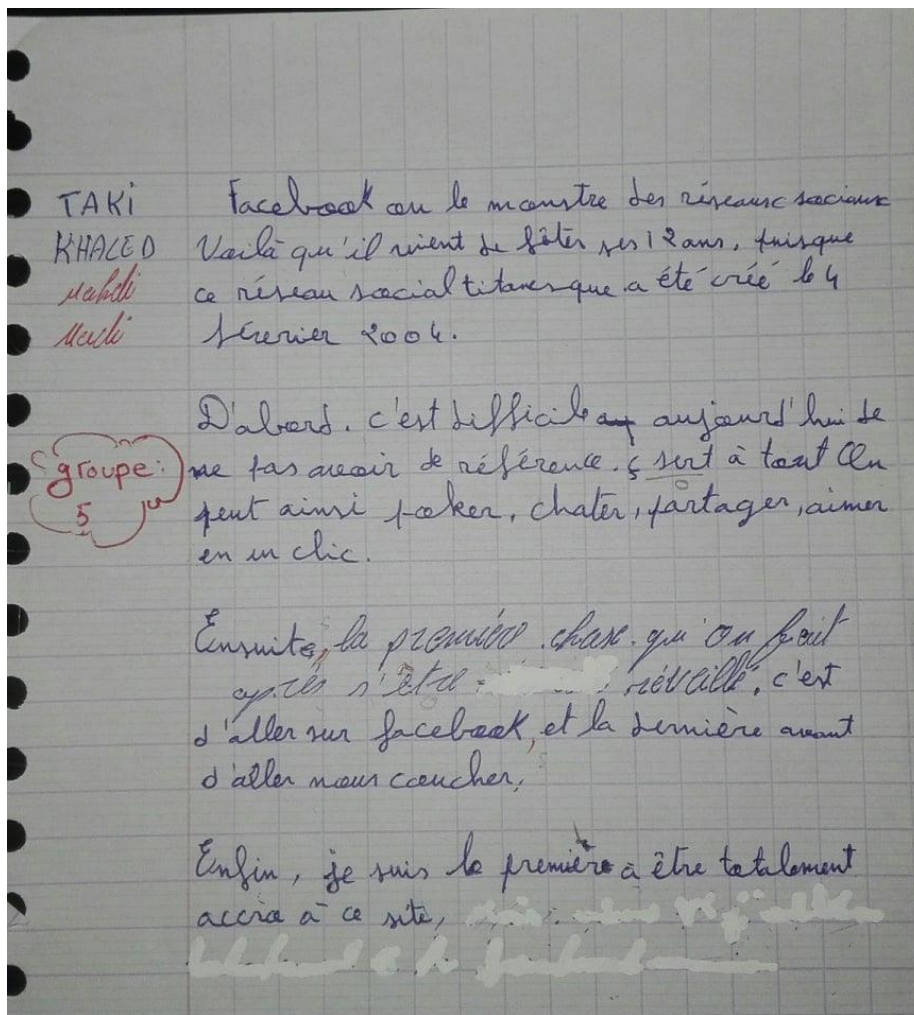 TAKi
KHALED
Mahdi
Madi
groupe:
5
Facebook ou le monstre des réseaux sociaux
Voilà qu'il vient de fêter ses 12 ans, puisque
ce réseau social titanesque a été créé le 4
février 2004.
D'abord. c'est difficile aujourd'hui de
ne pas avoir de référence. ç sert à tout On
peut ainsi poker, chater, partager, aimer
en un clic.
Ensuite, la première chose qu'on fait
après s'être réveillé, c'est
d'aller sur facebook, et la dernière avant
d'aller nous coucher.
Enfin, je suis la première à être totalement
accro à ce site,